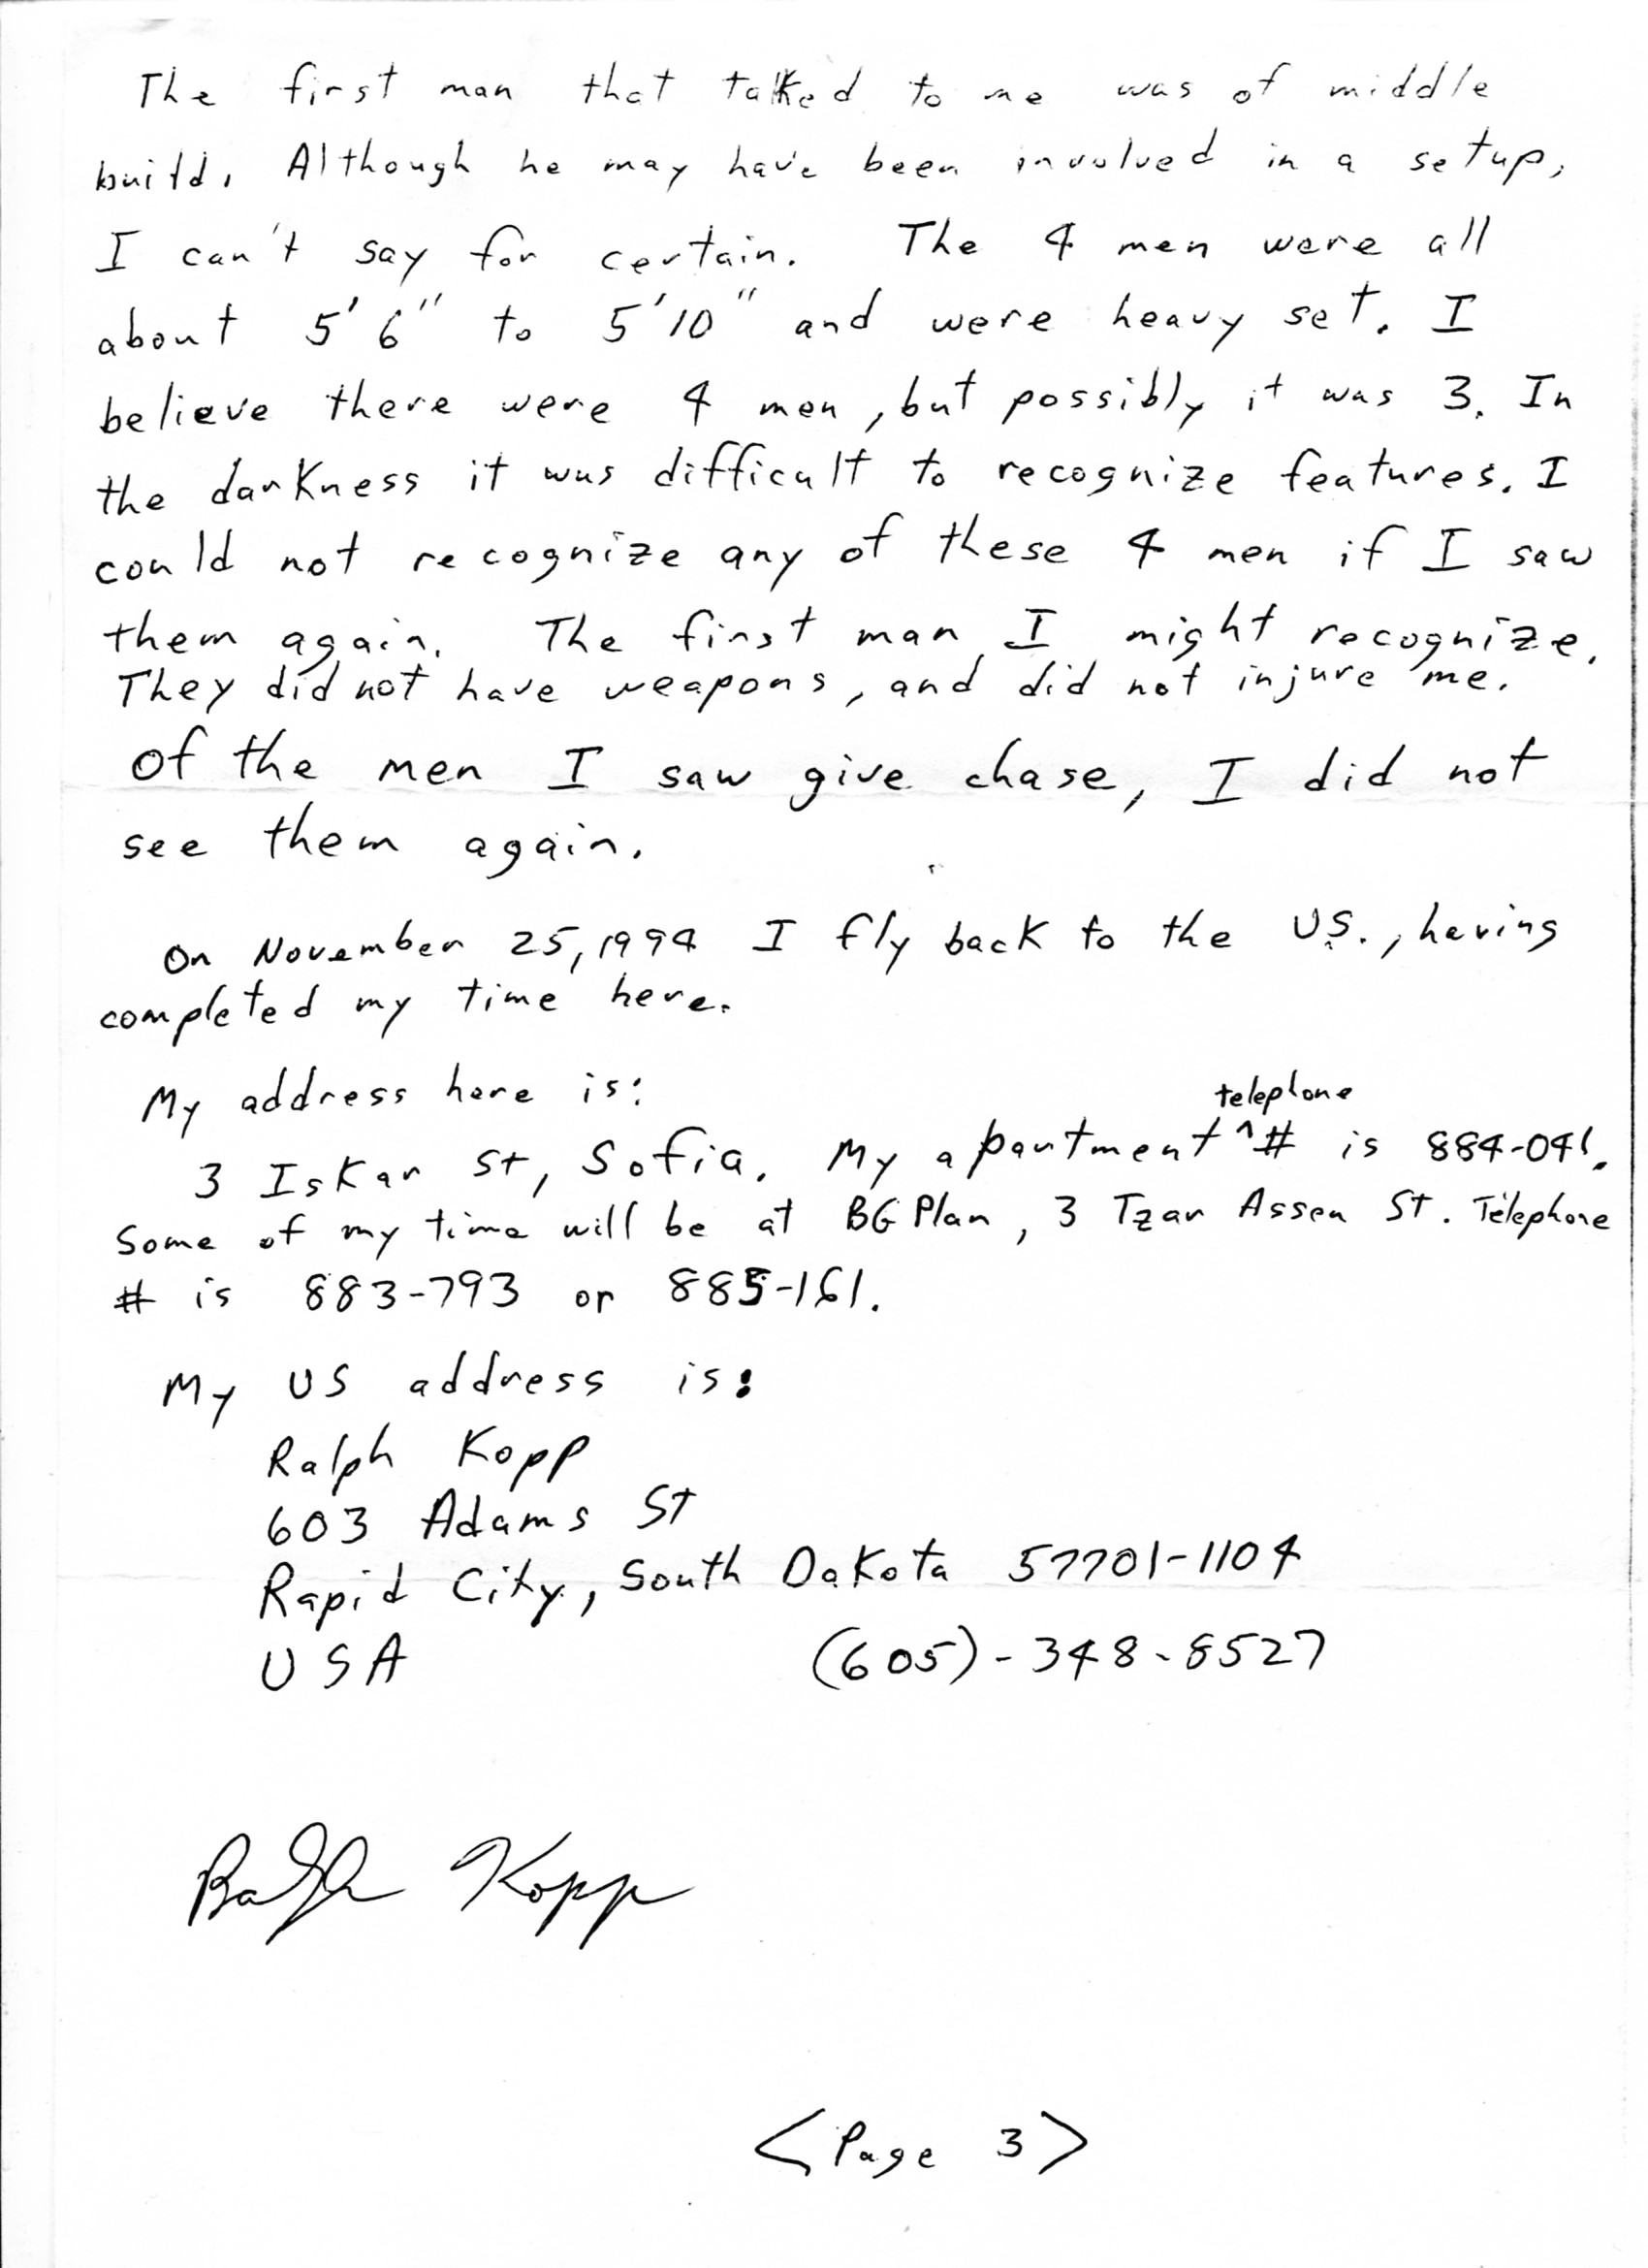 The first man that talked to me was of middle
build. Although he may have been involved in a setup,
I can't say for certain. The 4 men were all
about 5'6" to 5'10" and were heavy set. I
believe there were 4 men, but possibly it was 3. In
the darkness it was difficult to recognize features. I
could not recognize any of these 4 men if I saw
them again. The first man I might recognize.
They did not have weapons, and did not injure me.
Of the men I saw give chase, I did not
see them again.
On November 25, 1994 I fly back to the U.S., having
completed my time here.
My address here is:
telephone
3 Iskar St, Sofia. My apartment ^ # is 884-041.
Some of my time will be at BG Plan, 3 Tzar Assen St. Telephone
# is 883-793 or 885-161.
My US address is:
Ralph Kopp
603 Adams St
Rapid City, South Dakota 57701-1104
USA (605)-348-8527
Ralph Kopp
<Page 3>